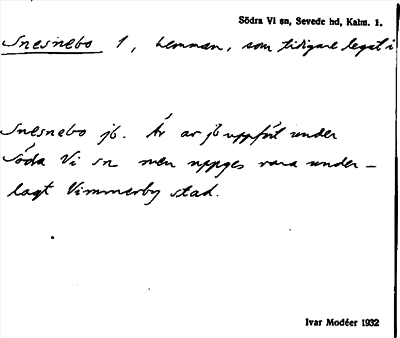 Södra Vi sn, Sevede hd, Kalm. 1.
Snesnebo 1, hemman, som tidigare legat i
Snesnebo jb. Är av jb uppfört under
Södra Vi sn men uppges vara under-
lagt Vimmerby stad.
Ivar Modéer 1932